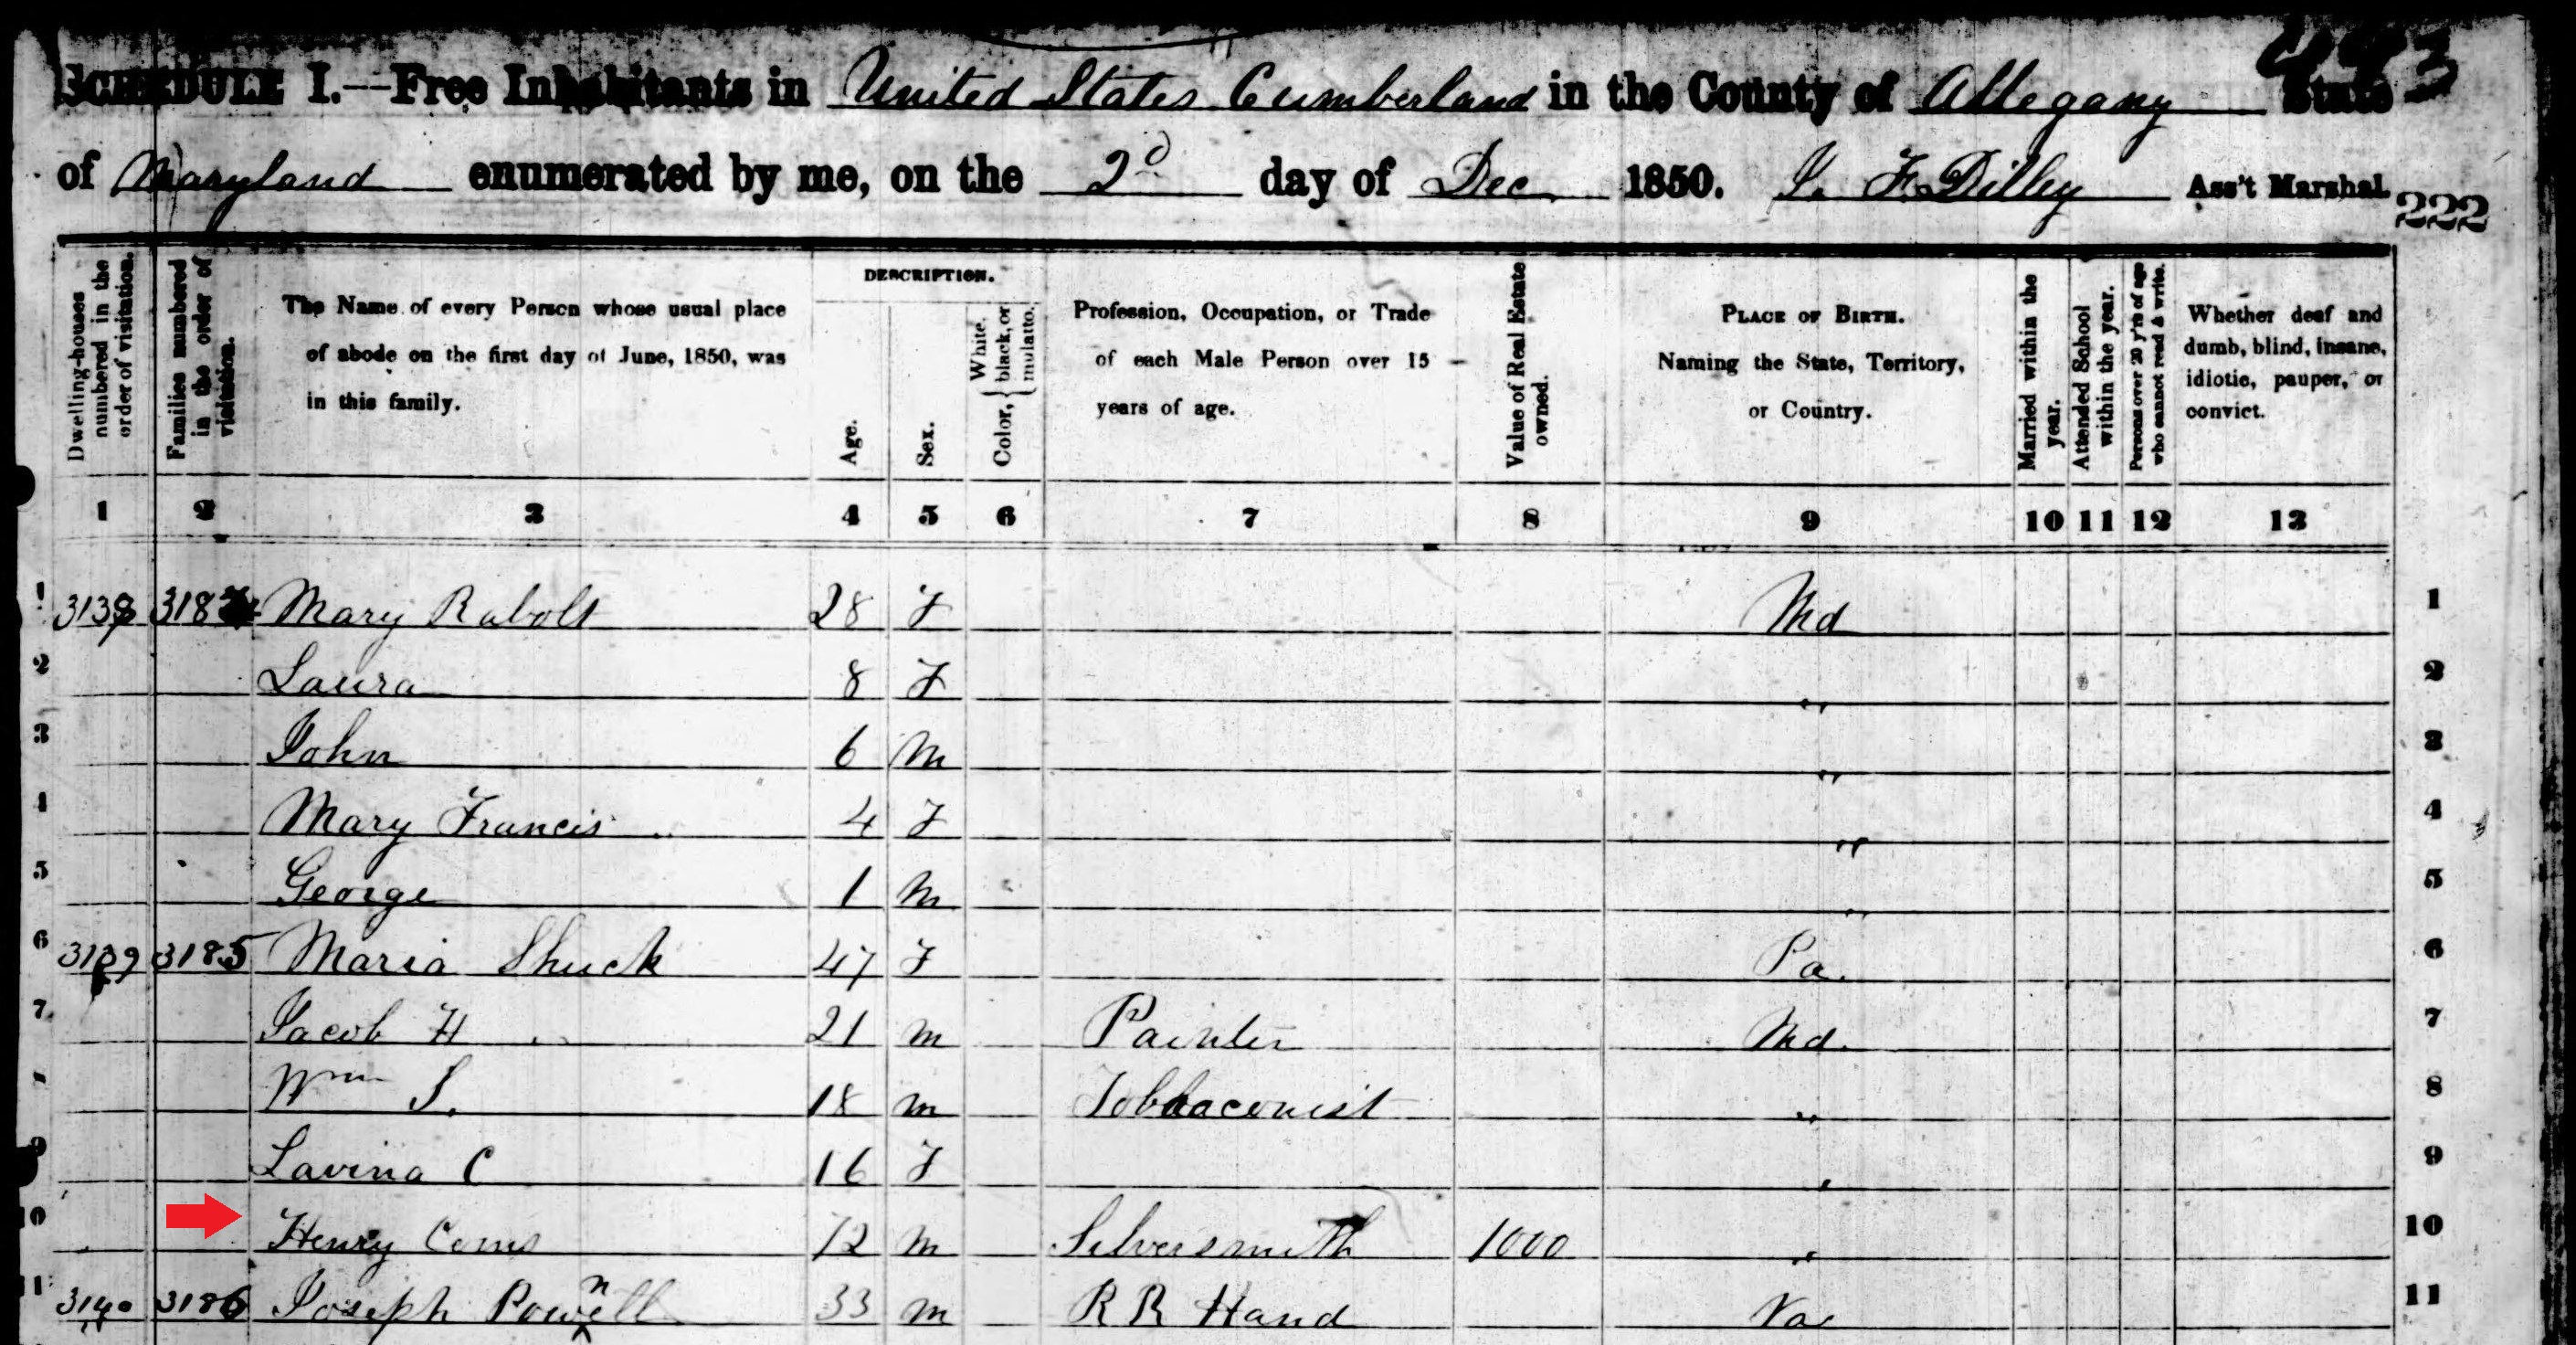 443
SCHEDULE I.—Free Inhabitants in United States Cumberland in the County of Allegany State
of Maryland enumerated by me, on the 2d day of Dec 1850. J. F. Dilley Ass't Marshal.
222
Dwelling-houses numbered in the order of visitation.
Families numbered in the order of visitation.
The Name of every Person whose usual place
of abode on the first day of June, 1850, was
in this family.
DESCRIPTION.
Age.
Sex.
Color, { White, black, or mulatto.
Profession, Occupation, or Trade
of each Male Person over 15
years of age.
Value of Real Estate owned.
PLACE OF BIRTH.
Naming the State, Territory,
or Country.
Married within the year.
Attended School within the year.
Persons over 20 y'rs of age who cannot read & write.
Whether deaf and
dumb, blind, insane,
idiotic, pauper, or
convict.
1 2 3 4 5 6 7 8 9 10 11 12 13
1 3138 3184 Mary Rabolt 28 F Md 1
2 Laura 8 F " 2
3 John 6 M " 3
4 Mary Francis 4 F " 4
5 George 1 M " 5
6 3139 3185 Maria Shuck 47 F Pa. 6
7 Jacob H 21 M Painter Md. 7
8 Wm S. 18 M Tobbaconist " 8
9 Lavina C 16 F " 9
10 Henry 72 M Silversmith 1000 " 10
11 3140 3186 Joseph Pownell 33 M R R Hand Va 11